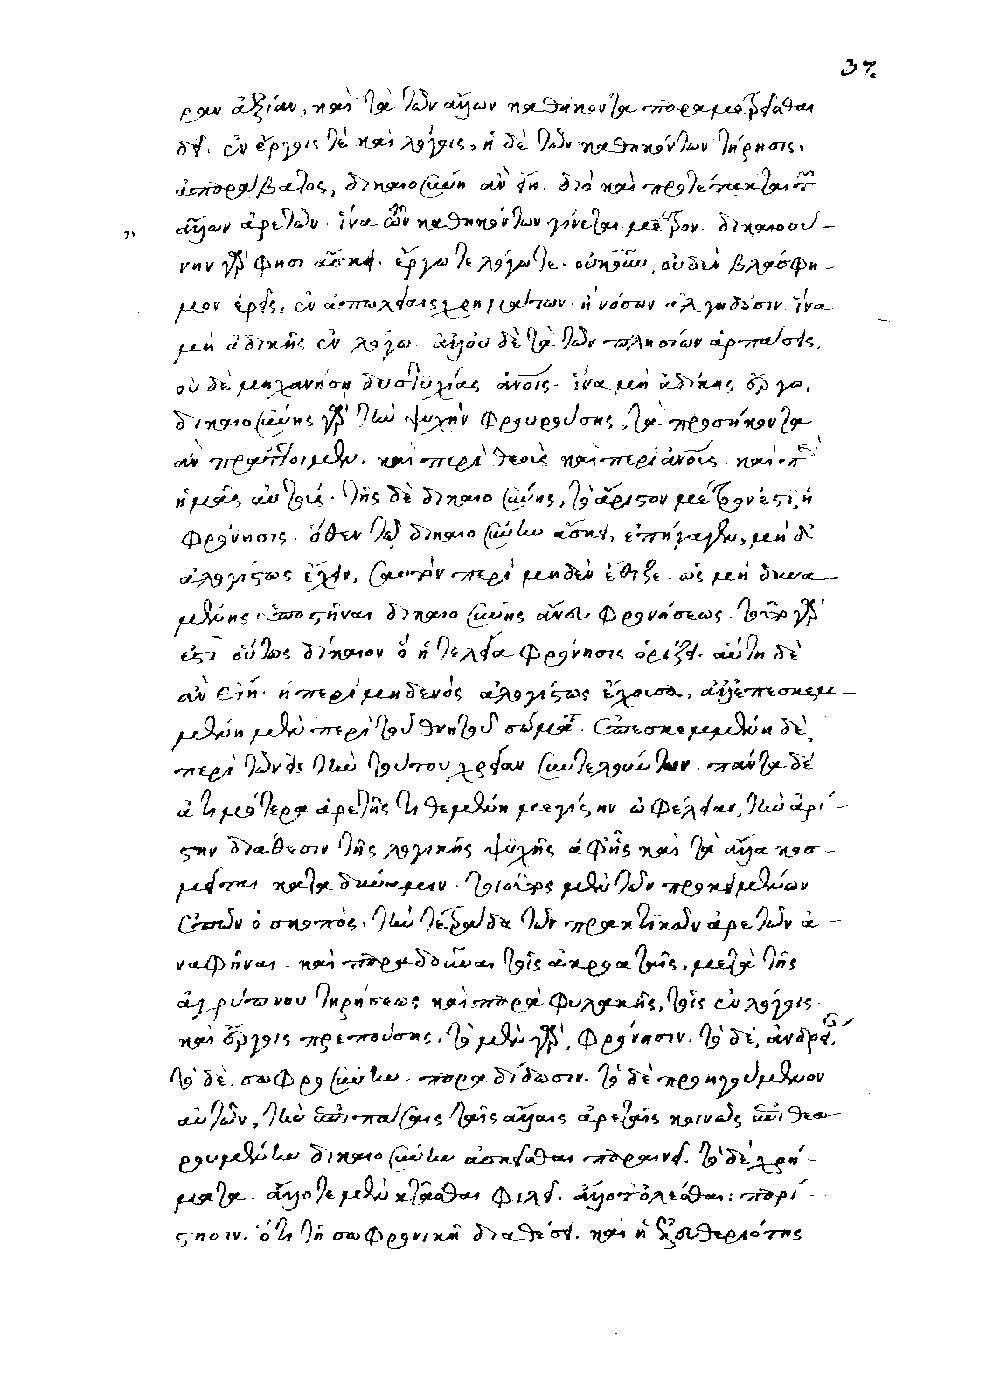 37.
ραν ἀξίαν, καὶ τὰ τῶν ἄλλων καθήκοντα παραμετρεῖσθαι
δεῖ. ἐν ἔργοις τὲ καὶ λόγοις, ἡ δὲ τῶν καθηκόντων τήρησις,
ἀπαράβατος, δικαιοσύνη ἂν εἴη. διὸ καὶ προτέτακται τῶν
ἄλλων ἀρετῶν. ἵνα τῶν καθηκόντων γίνεται μέτρον. δικαιοσύ-
νην γὰρ φησὶ ἄσκει. ἔργῳ τε λόγῳ τε. οὐκοῦν, οὐδὲν βλάσφη-
μον ἐρεῖς, ἐν ἀπωλείαις χρημάτων. ἢ νόσων ἀλγηδόσιν. ἵνα
μὴ ἀδικῇς ἐν λόγῳ. ἀλλ' οὐδὲ τὰ τῶν πλησίων ἁρπάσεις,
οὐδὲ μηχανήσῃ δυστυχίας ἀνοις. ἵνα μὴ ἀδίκης ἔργῳ.
δικαιοσύνης γὰρ τὴν ψυχὴν φρουρούσης, τὰ προσήκοντα
ἂν πράττοιμεν. καὶ περὶ θεοὺς καὶ περὶ ἀνοις. καὶ
ἡμᾶς αὐτούς. τῆς δὲ δικαιοσύνης, τὸ ἄριστον μέτρον ἐστὶν ἡ
φρόνησις. ὅθεν τῷ δικαιοσύνην ἄσκει, ἐπήγαγεν, μὴ δ'
ἀλογίστως ἔχειν, σαυτὸν περὶ μηδὲν ἔθιζε. ὡς μὴ δυνα-
μένης ὑποστῆναι δικαιοσύνης ἄνευ φρονήσεως. τοῦτο γὰρ
ἐστὶ οὕτως δίκαιον ὃ ἡ τελεία φρόνησις ὁρίζει. αὕτη δὲ
ἂν εἴη. ἡ περὶ μηδενὸς ἀλογίστως ἔχουσα, ἀλλ' ἐπεσκεμ-
μένη μὲν περὶ τοῦ θνητοῦ σώματος. ἐπεσκεμμένη δὲ,
περὶ τῶν εἰς τὴν τούτου χρείαν συντελούντων. πάντα δὲ
ἀτιμότερα ἀρετῆς τιθεμένη μεγίστην ὠφέλειαν, τὴν ἀρί-
στην διάθεσιν τῆς λογικῆς ψυχῆς ἀφ' ἧς καὶ τὰ ἄλλα κοσ-
μεῖται κατὰ δύναμιν. τοιοῦτος μὲν τῶν προκειμένων
ἐπῶν ὁ σκοπὸς, τὴν τετράδα τῶν πρακτικῶν ἀρετῶν ἀ-
ναφῆναι. καὶ παραδοῦναι τοῖς ἀκροαταῖς, μετὰ τῆς
ἀγρύπνου τηρήσεως καὶ παραφυλακῆς, τοῖς ἐν λόγοις
καὶ ἔργοις πρεπούσης. τὸ μὲν γὰρ, φρόνησιν. τὸ δὲ, ἀνδρείαν,
τὸ δὲ, σωφροσύνην. παραδίδωσιν. τὸ δὲ προηγούμενον
αὐτῶν, τὴν ἐπὶ πάσαις ταῖς ἄλλαις ἀρεταῖς κοινῶς ἐπιθεω-
ρουμένην δικαιοσύνην ἀσκεῖσθαι παραινεῖ. τὸ δὲ χρή-
ματα. ἄλλοτε μὲν κτᾶσθαι φιλεῖ. ἄλλοτ' ὀλέσθαι: παρί-
στησιν. ὅτι τῇ σωφρονικῇ διαθέσει. καὶ ἡ ἐλευθεριότης